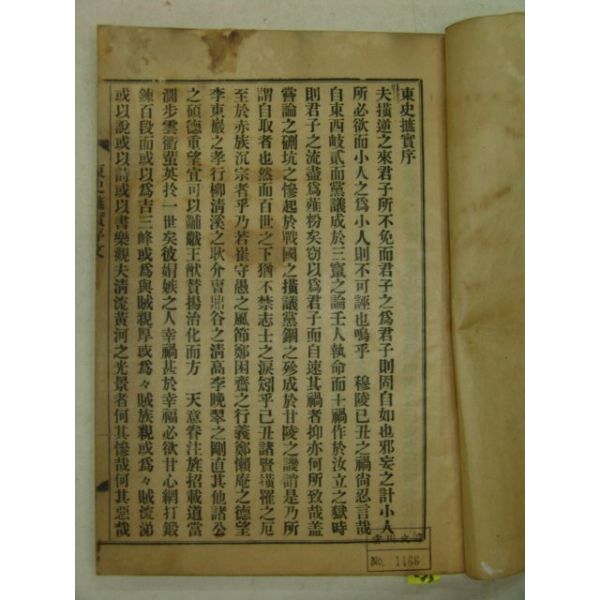 東史摭實序
夫橫逆之來君子所不免而君子之爲君子則固自如也邪妄之計小人
所必欲而小人之爲小人則不可誣也嗚乎　穆陵己丑之禍尙忍言哉
自東西岐貳而黨議成於三竄之論壬人執命而十禍作於汝立之獄時
則君子之流盡爲薤粉矣窃以爲君子而自速其禍者抑亦何所致哉盖
嘗論之硎坑之慘起於戰國之橫議黨錮之殄成於甘陵之譏謗是乃所
謂自取者也然而百世之下猶不禁志士之淚矧乎己丑諸賢橫罹之厄
至於赤族沉宗者乎乃若崔守愚之風節鄭困齋之行義鄭懶庵之德望
李東巖之孝行柳淸溪之耿介曺鼎谷之淸高李晚翠之剛直其他諸公
之碩德重望宜可以黼黻王猷賛揚治化而方　天意眷注旌招載道當
濶步雲衢蜚英拎一世矣彼媢嫉之人幸禍甚於幸福必欲甘心網打鍛
鍊百段而或以爲吉三峰或爲與賊親厚或爲々賊族親或爲々賊流涕
或以說或以詩或以書樂觀夫淸流黃河之光景者何其慘哉何其惡哉
東史摭實序文
No. 1466